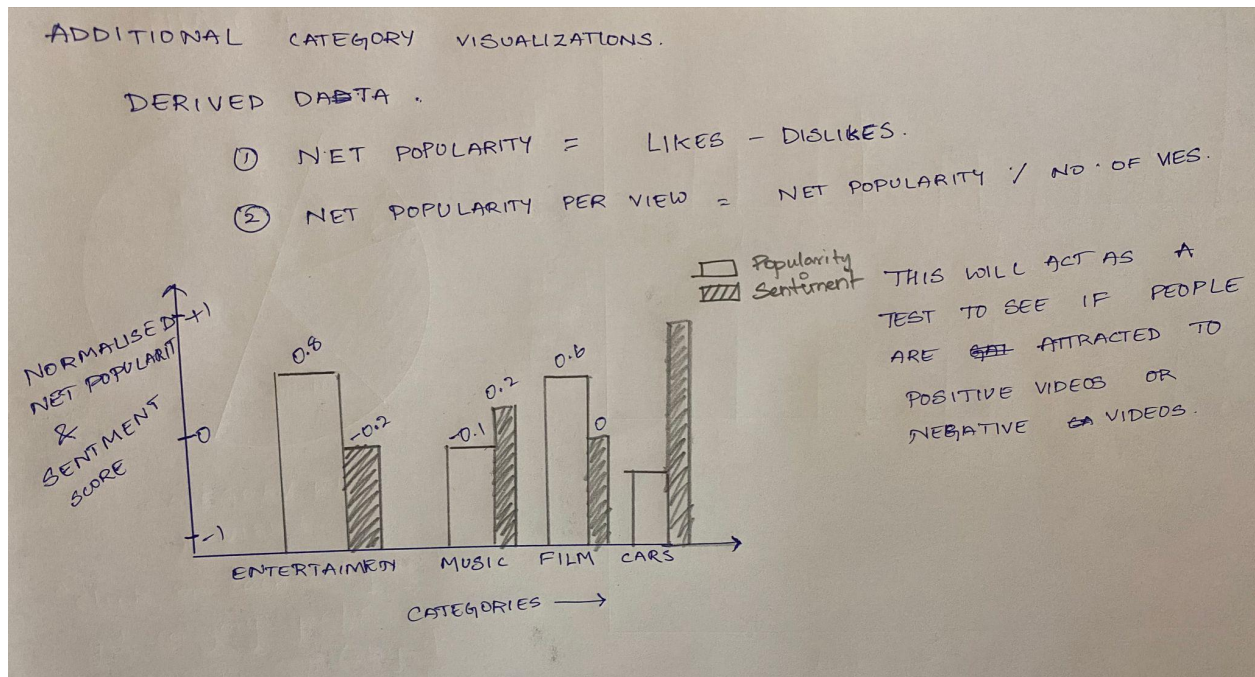 ADDITIONAL CATEGORY VISUALIZATIONS.
DERIVED DATA.
① NET POPULARITY = LIKES - DISLIKES.
② NET POPULARITY PER VIEW = NET POPULARITY % NO. OF VIES.
Popularity
Sentiment
THIS WILL ACT AS A
TEST TO SEE IF PEOPLE
ARE ATTRACTED TO
POSITIVE VIDEOS OR
NEGATIVE VIDEOS.
NORMALISED
NET POPULARIT
&
SENTMENT
SCORE
+1
0
-1
0.8
-0.2
-0.1
0.2
0.6
0
ENTERTAIMEN MUSIC FILM CARS
CATEGORIES →